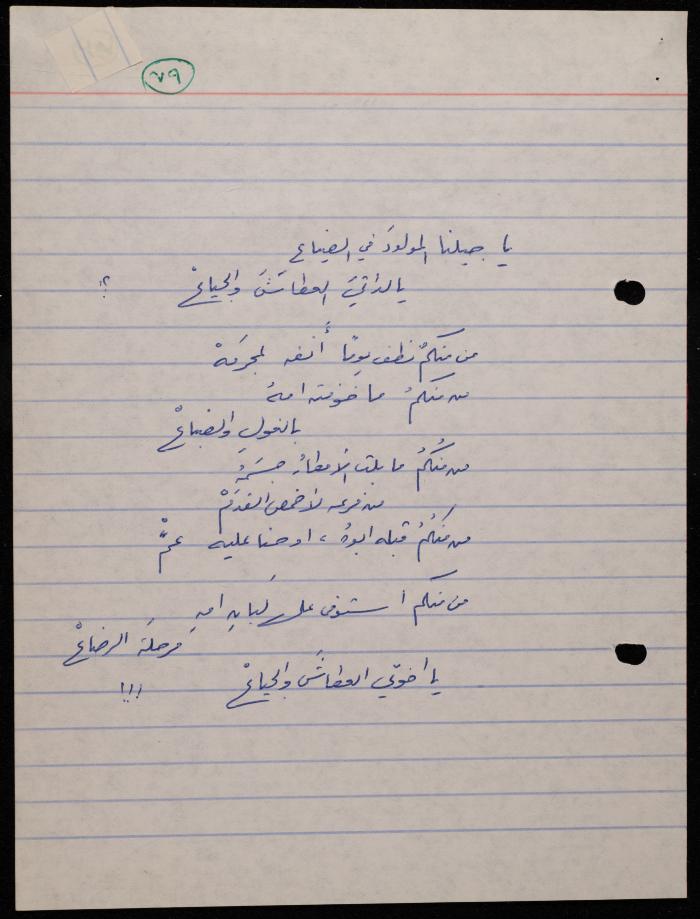 ٧٩
يا جيلنا المولودَ في الضياع
يا لداتيَ العطاشَ والجياعْ ؟!
من منكمُ نظف يومًا أنفه لمحرمَهْ
من منكمُ ما خوفته امهُ
بالغولِ والضباعْ
من مُنكُمُ ما بلت الأمطارُ جسمَهُ
من فرعه لأخمص القدمْ
من منكُمُ قبله ابوهُ ، او حنا عليه عمّْ
من منكم أستوفى على لبانِ امهِ
مرحلَة الرضاعْ
يا اخوتي العطاشَ والجياعْ !!!